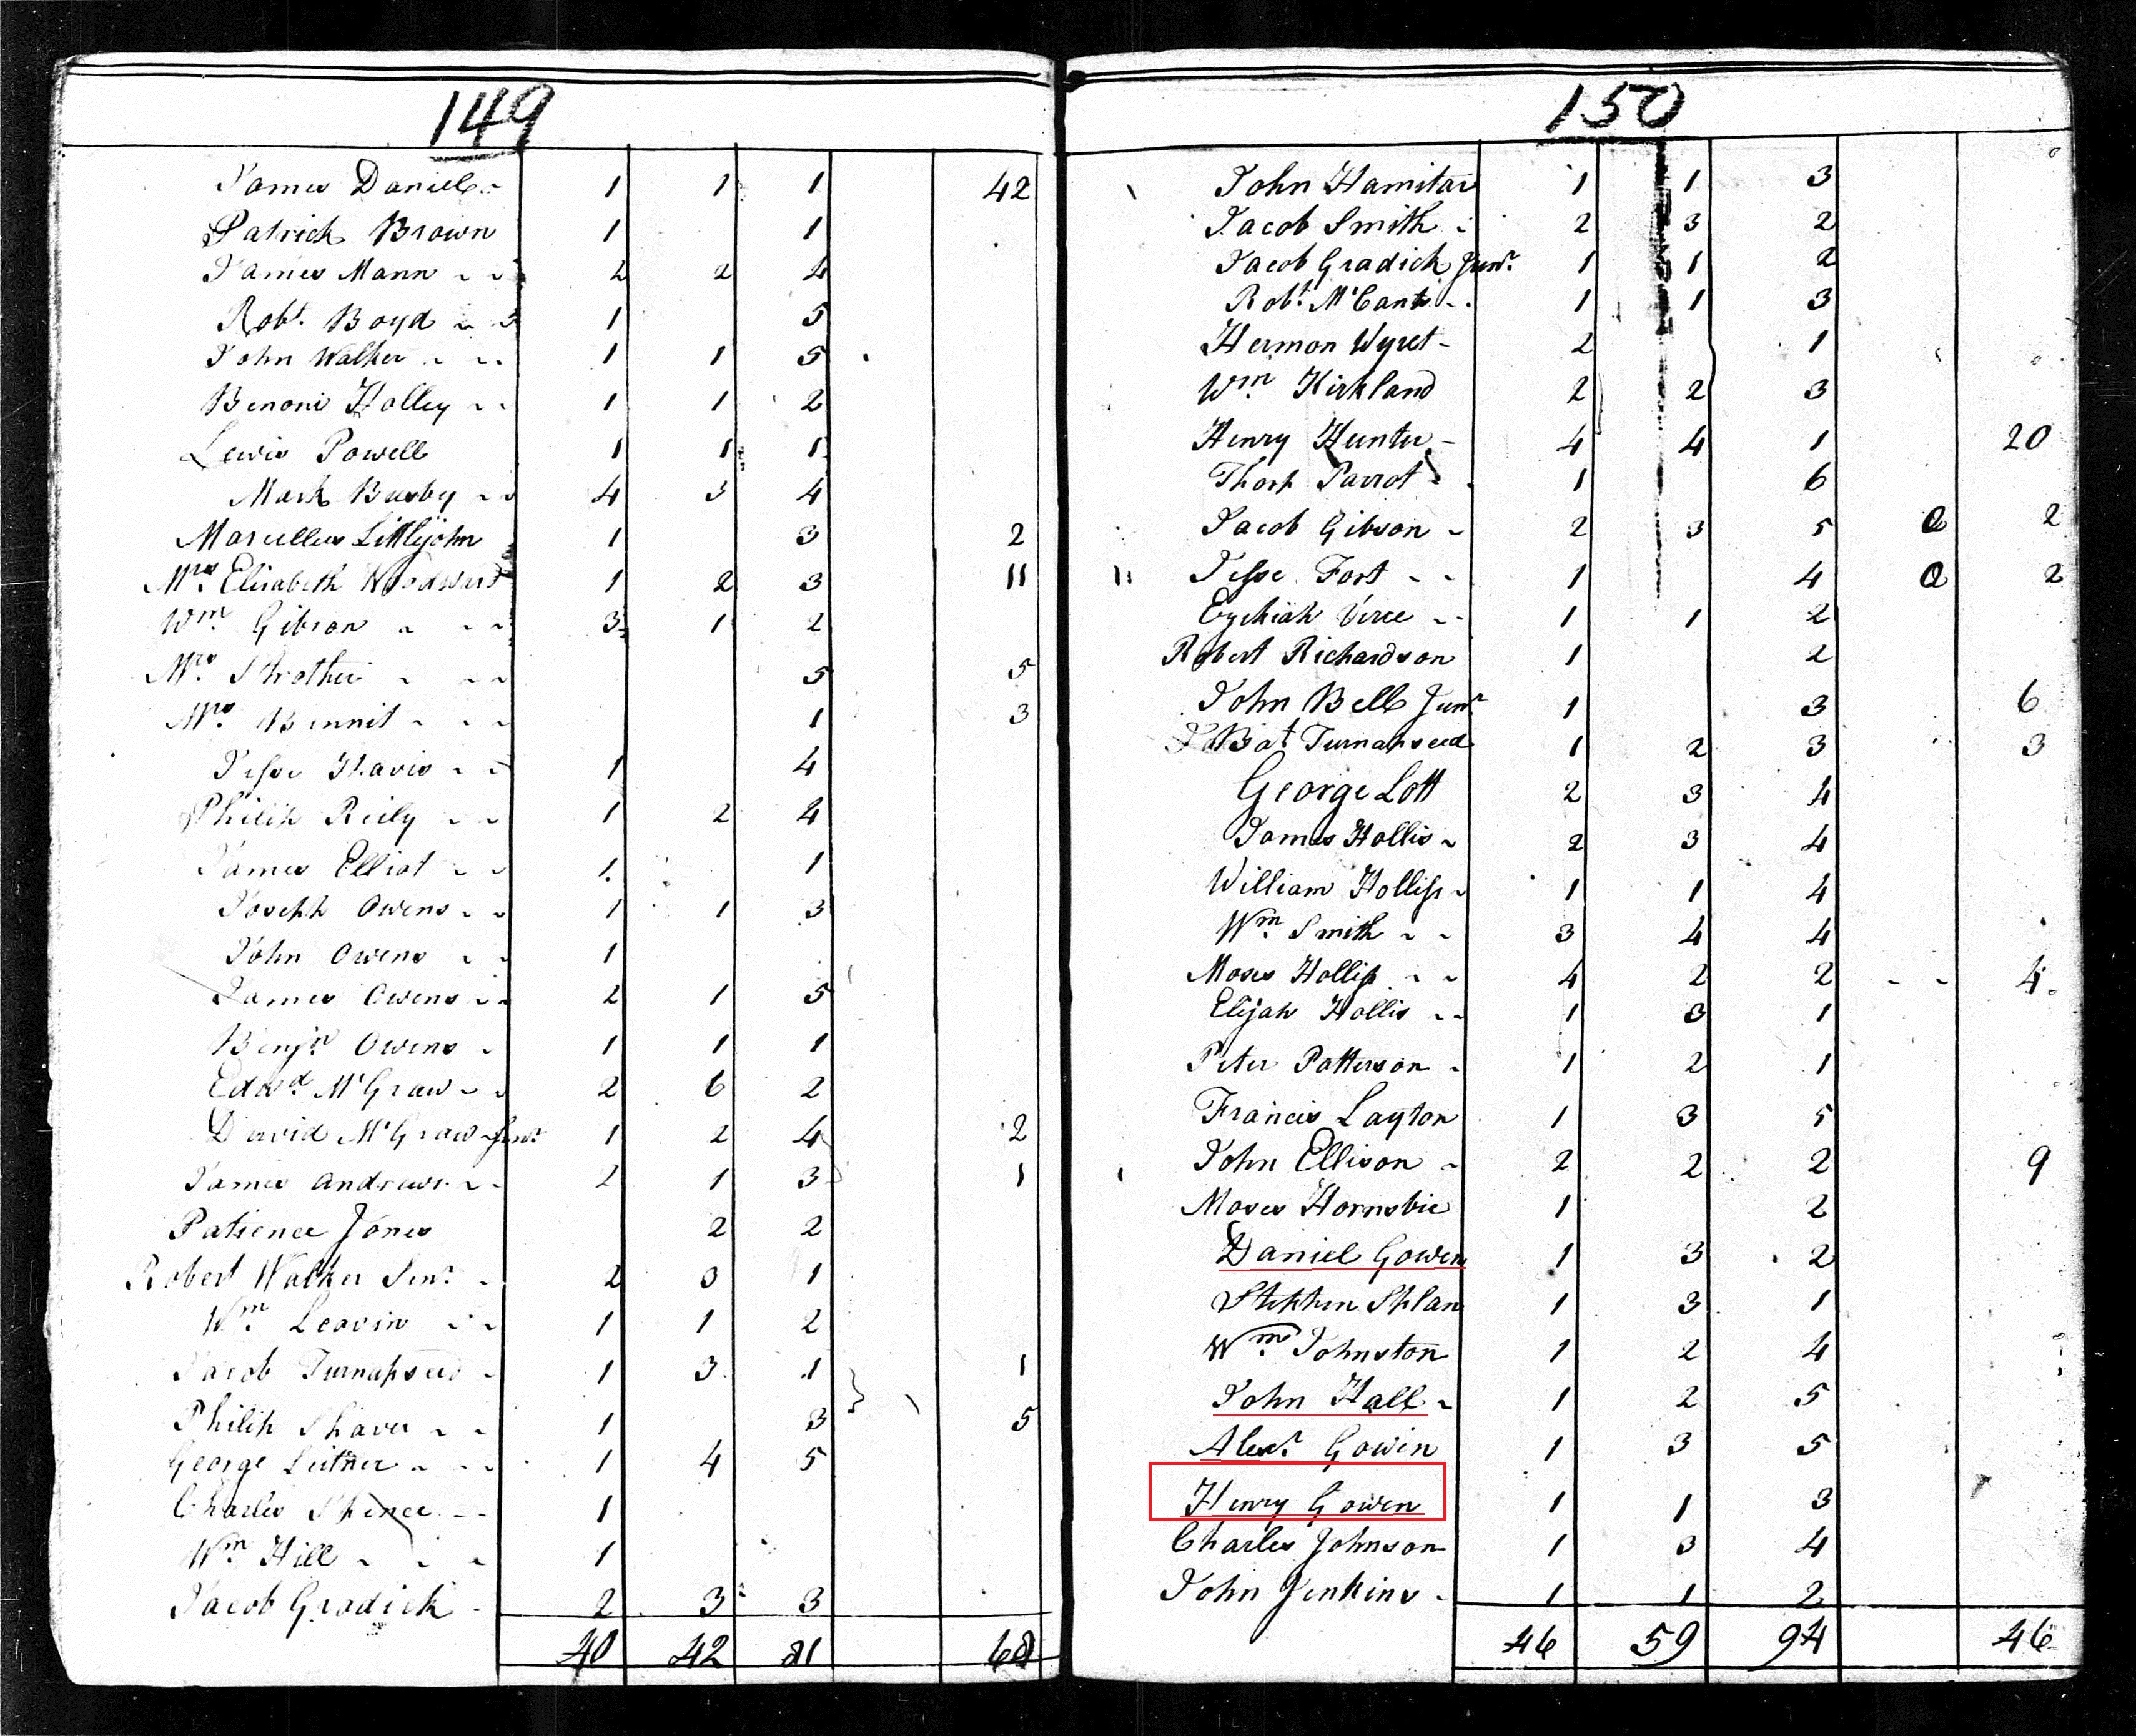 149
James Daniel 1 1 1 42
Patrick Brown 1 1
James Mann 2 2 4
Robt. Boyd 1 5
John Walker 1 1 5
Benoni Holley 1 1 2
Lewis Powell 1 1 1
Mark Busby 4 3 4
Marcellus Littlejohn 1 3 2
Mrs. Elisabeth Woodward 1 2 3 11
Wm. Gibson 3 1 2
Mrs. Strother 5 5
Mrs. Binnit 1 3
Jesse Havis 1 4
Philip Reily 1 2 4
James Elliot 1 1
Joseph Owens 1 1 3
John Owens 1
James Owens 2 1 5
Benjn. Owens 1 1 1
Edwd. McGraw 2 6 2
David McGraw Junr. 1 2 4 2
James Andrews 2 1 3 1
Patience Jones 2 2
Robert Walker Senr. 2 3 1
Wm. Leavin 1 1 2
Jacob Turnapseed 1 3 1 1
Philip Shaver 1 3 5
George Leitner 1 4 5
Charles Spence 1
Wm. Hill 1
Jacob Gradick 2 3 3
40 42 81
150
John Hamitar 1 1 3
Jacob Smith 2 3 2
Jacob Gradick Junr. 1 1 2
Robt. McCants 1 1 3
Hermon Wyret 2 1
Wm. Kirkland 2 2 3
Henry Hunter 4 4 1 20
Thos Parrot 1 6
Jacob Gibson 2 3 5 2
Jesse Fort 1 4 2
Ezekiah 1 1 2
Robert Richardson 1 2
John Bell Junr. 1 3 6
Bat Turnapseed 1 2 3 3
George Lott 2 3 4
James Hollis 2 3 4
William Hollis 1 1 4
Wm. Smith 3 4 4
Moses Hollis 4 2 2 4
Elijah Hollis 1 3 1
Peter Patterson 1 2 1
Francis Layton 1 3 5
John Ellison 2 2 2 9
Moses Hornsbie 1 2
Daniel Gowen 1 3 2
Stephen Splan 1 3 1
Wm. Johnston 1 2 4
John Hall 1 2 5
Alexr. Gowin 1 3 5
Henry Gowen 1 1 3
Charles Johnson 1 3 4
John Jenkins 1 1 2
46 59 94 46